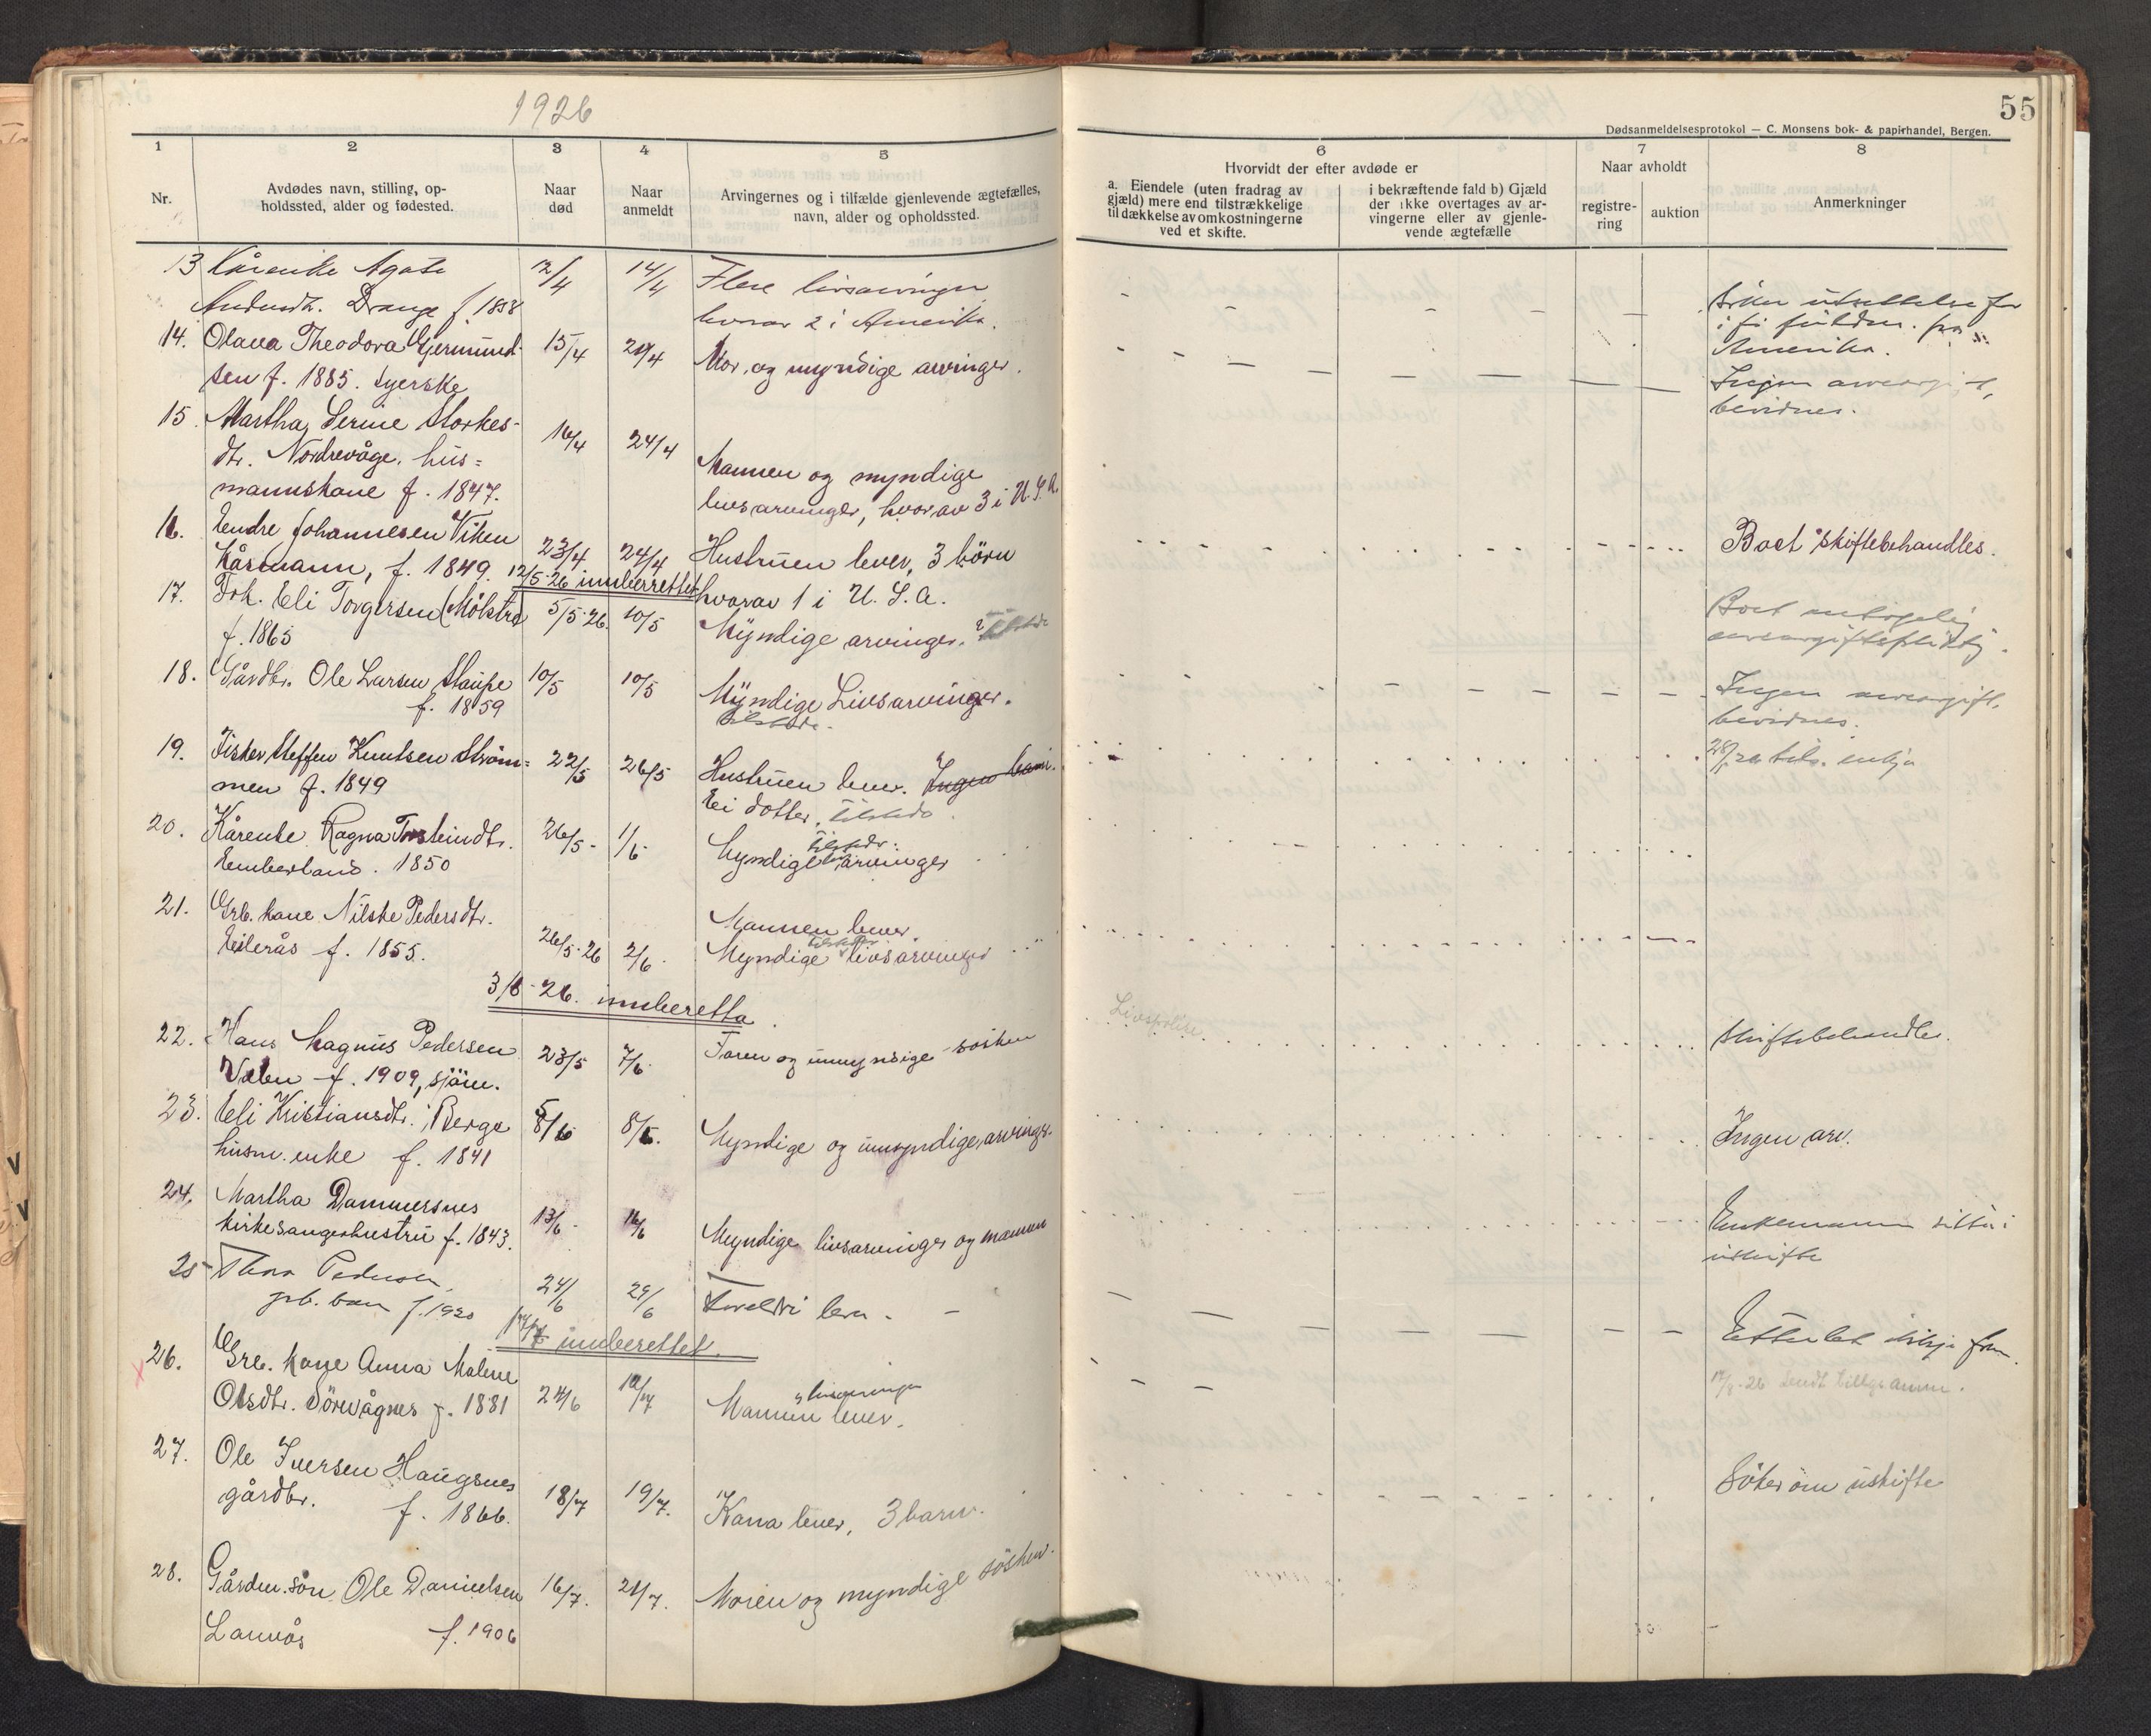 1926
55
Dødsanmeldelsesprotokol — C. Monsens bok- & papirhandel, Bergen.
1
2
3
4
5
6
7
8
Nr.
Avdødes navn, stilling, op-
holdssted, alder og fødested.
Naar
død
Naar
anmeldt
Arvingernes og i tilfælde gjenlevende ægtefælles,
navn, alder og opholdssted.
Hvorvidt der efter avdøde er
a. Eiendele (uten fradrag av
gjæld) mere end tilstrækkelige
til dækkelse av omkostningerne
ved et skifte.
i bekræftende fald b) Gjæld
der ikke overtages av ar-
vingerne eller av gjenle-
vende ægtefælle
Naar avholdt
registre-
ring
auktion
Anmerkninger
13 Kårenke Agate 12/4 14/4 Flere livsarvinger
Drange f. 1858 hvorav 2 i Amerika.
Amerika.
14. Olava Theodora Germund- 15/4 21/4 Mor, og myndige arvinger.
sen f. 1885. Syerske
Ingen arveavgift,
bevidnes.
15 Martha Serine Storkes- 16/4 24/4
dtr. Nordrevåge, hus=
mannskone f. 1847.
Mannen og myndige
livsarvinger, hvorav 3 i U.S.A.
16. Endre Johannesen Viken 23/4 24/4 Hustruen lever, 3 börn
Kårmann, f. 1849. hvorav 1 i U.S.A.
Boet skiftebehandles.
12/5-26 innberettet
17. Frk. Eli Torgersen (Mölstre) 5/5-26. 10/5 Myndige arvinger.
f. 1865
Boet
arveavgiftspliktig.
18. Gårdbr. Ole Larsen Staupe 10/5 10/5 Myndige Livsarvinger.
f. 1859 tilstede.
Ingen arveavgift,
bevidnes.
19. Fisker Steffen Knutsen Ström= 22/5 26/5 Hustruen lever. Ingen barn.
men f. 1849 Ei dotter, tilstede.
20. Kårenke Ragna Torsteindtr. 26/5- 1/6 Myndige arvinger
Emberland. 1850 tilstede.
21. Grb. kone Nilske Pedersdtr. Mannen lever
Eilerås f. 1855. 26/5-26 2/6. Myndige livsarvinger
3/6-26. innberetta.
22. Hans Magnus Pedersen 23/5 7/6. Faren og umyndige sösken
Valen f. 1909, sjöm.
Livspolise
Skiftebehandles.
23. Eli Kristiansdtr. Berge 8/6. Myndige og umyndige arvinger.
husm. enke f. 1841
Ingen arv.
24. Martha Dammersnes 13/6- 16/6 Myndige livsarvinger og mannen
kirkesangerhustru f. 1843.
Enkemannen sitter i
uskifte
25 Thora Pedersen 24/6 29/6
grb. barn f. 1920
innberettet.
26. Grb. kone Anna Malene 24/6 12/7 Mannen lever.
Olsdtr. Sörevågnes f. 1881 og livsarvinger
27. Ole Iversen Haugsnes 18/7 19/7. Kona lever, 3 barn.
gårdbr. f. 1866.
Söker om uskifte
28. Gårdm. sön Ole Danielsen 16/7. 21/7. Moren og myndige sösken.
Lannås f. 1906